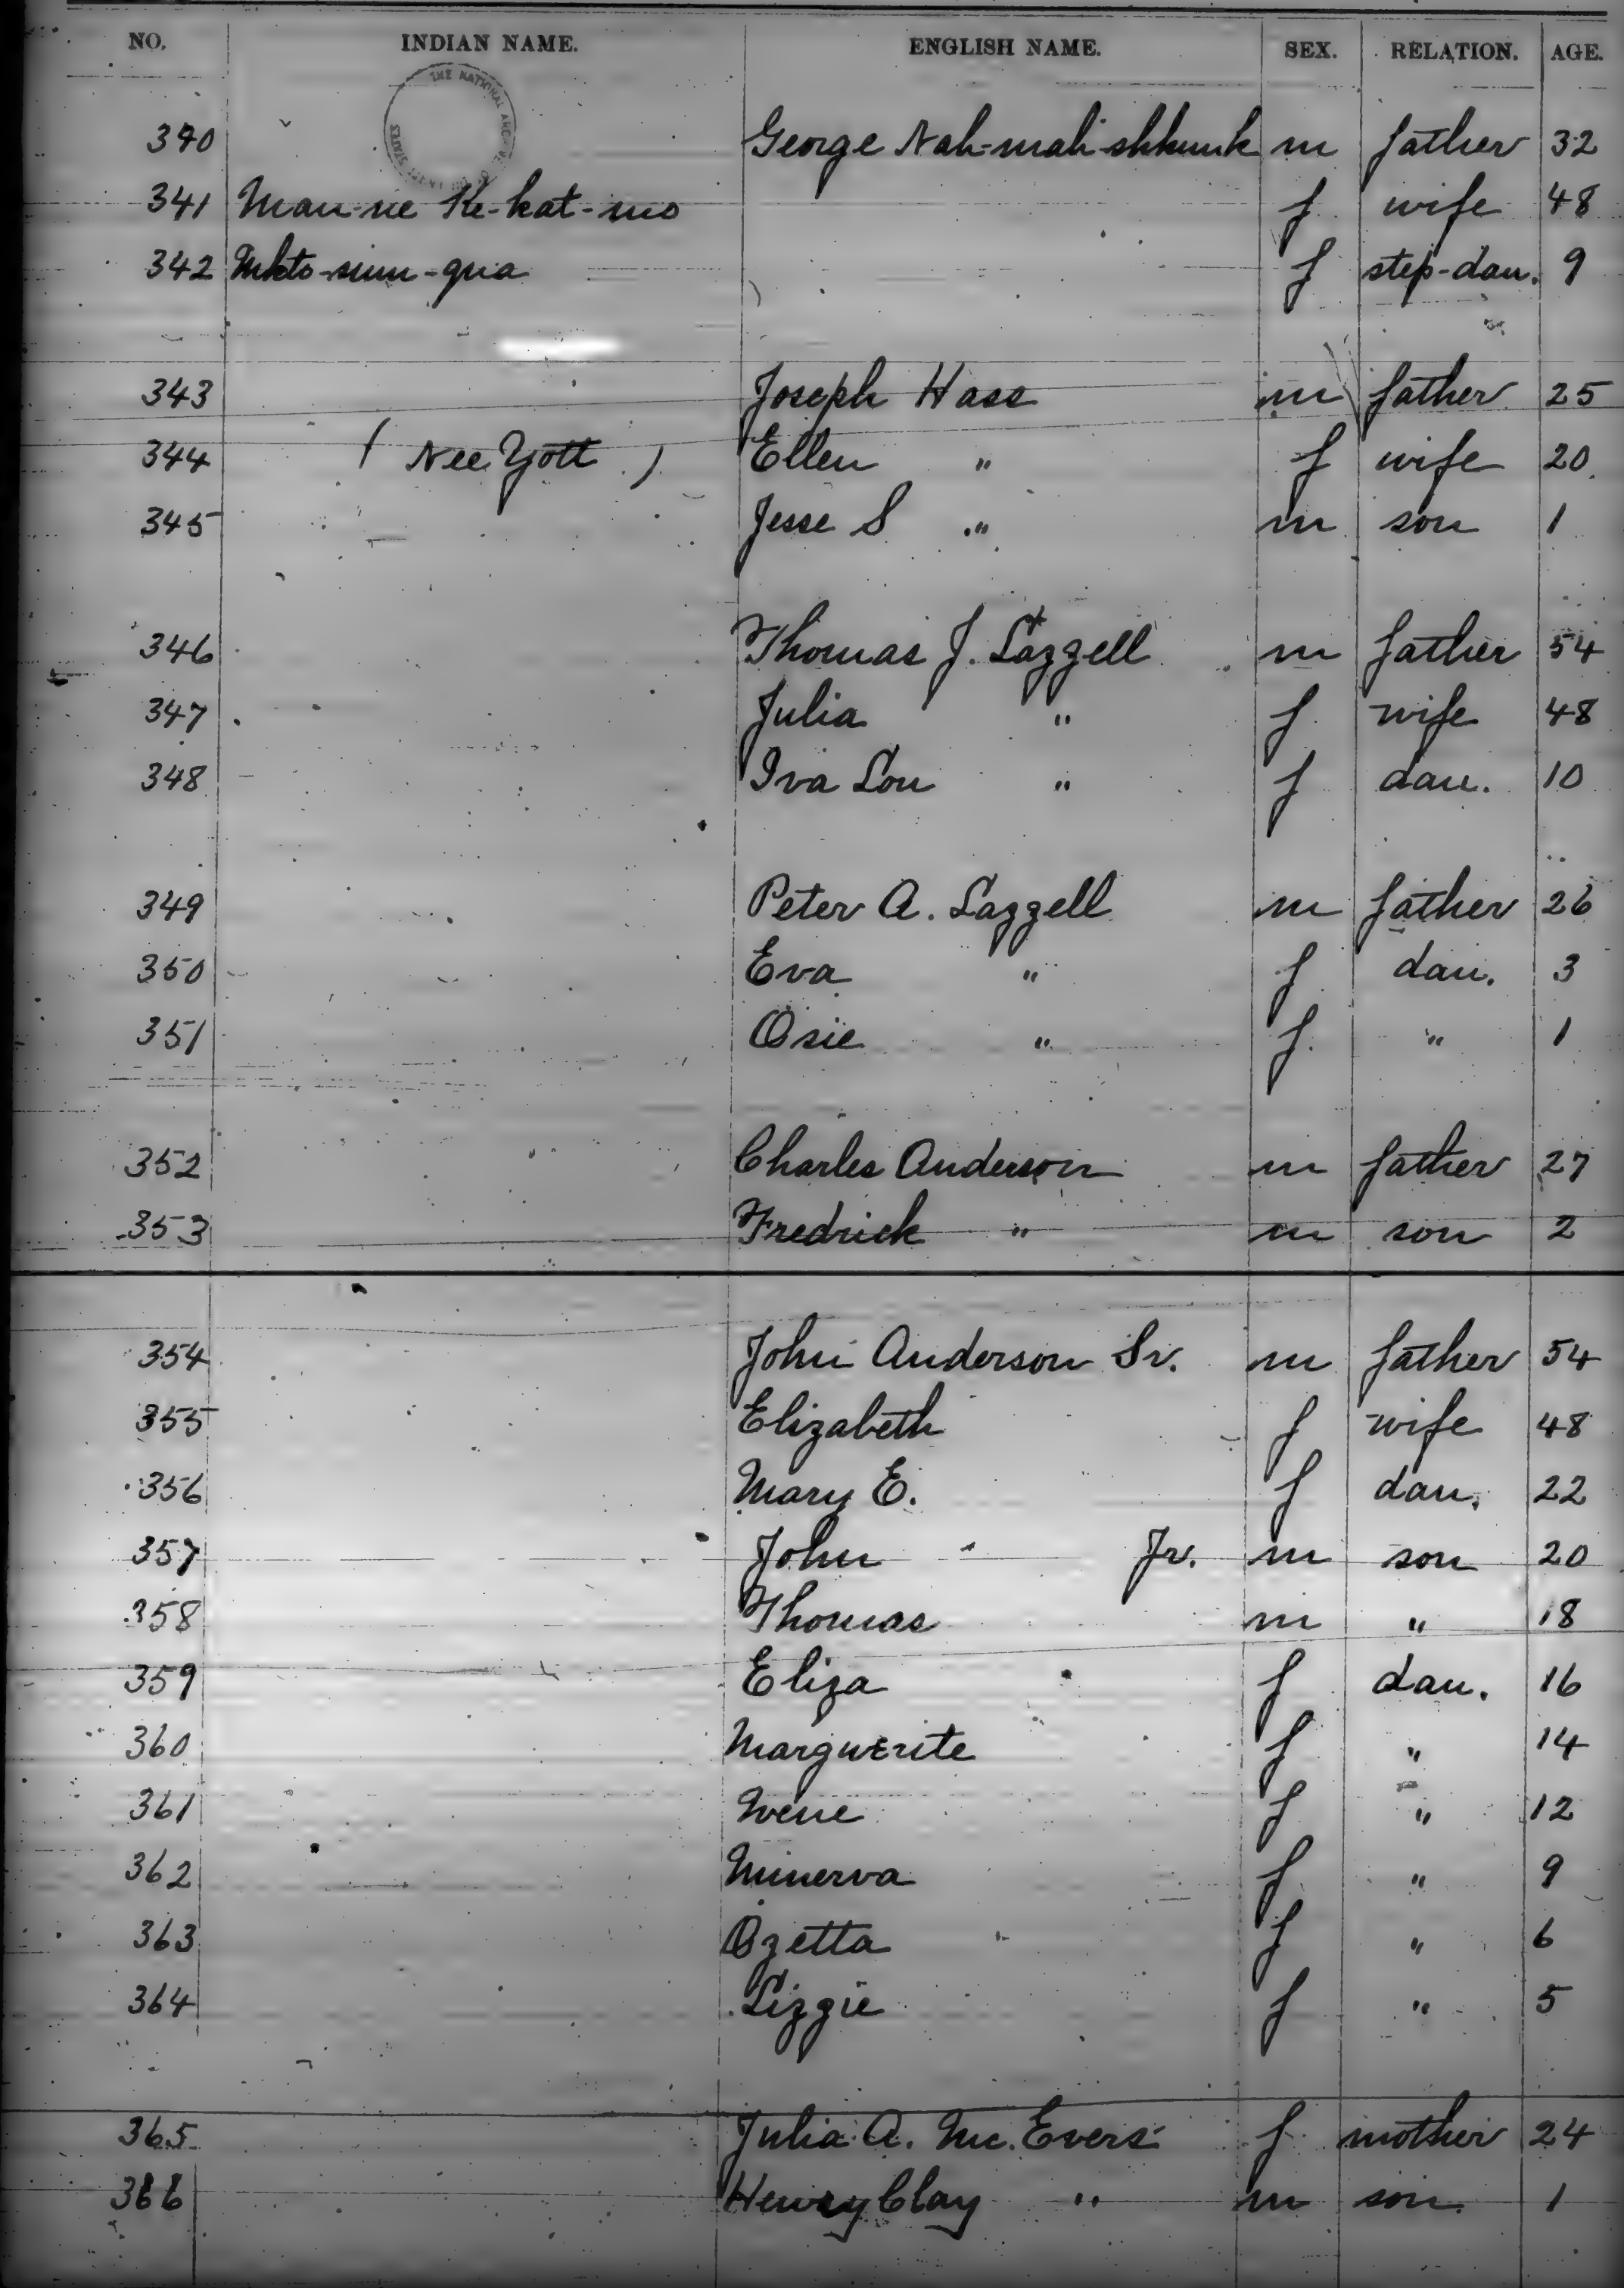 NO. INDIAN NAME. ENGLISH NAME. SEX. RELATION. AGE.
THE NATIONAL
340 George Nah-mah-shkunk m father 32
341 Man-ne Ke-kat-mo f wife 48
342 Mkto-sum-qua f step-dau. 9
343 Joseph Hass m father 25
344 ( Nee Yott ) Ellen " f wife 20
345 Jesse S " m son 1
346 Thomas J. Lazzell m father 54
347 Julia " f wife 48
348 Iva Lou " f dau. 10
349 Peter A. Lazzell m father 26
350 Eva " f dau. 3
351 Osie " f. " 1
352 Charles Anderson m father 27
353 Fredrick " m son 2
354 John Anderson Sr. m father 54
355 Elizabeth f wife 48
356 Mary E. f dau. 22
357 John " Jr. m son 20
358 Thomas m " 18
359 Eliza f dau. 16
360 Marguerite f " 14
361 f " 12
362 Minerva f " 9
363 Ozetta f " 6
364 Lizzie f " 5
365 Julia A. Mc.Evers f mother 24
366 Henry Clay " m son 1